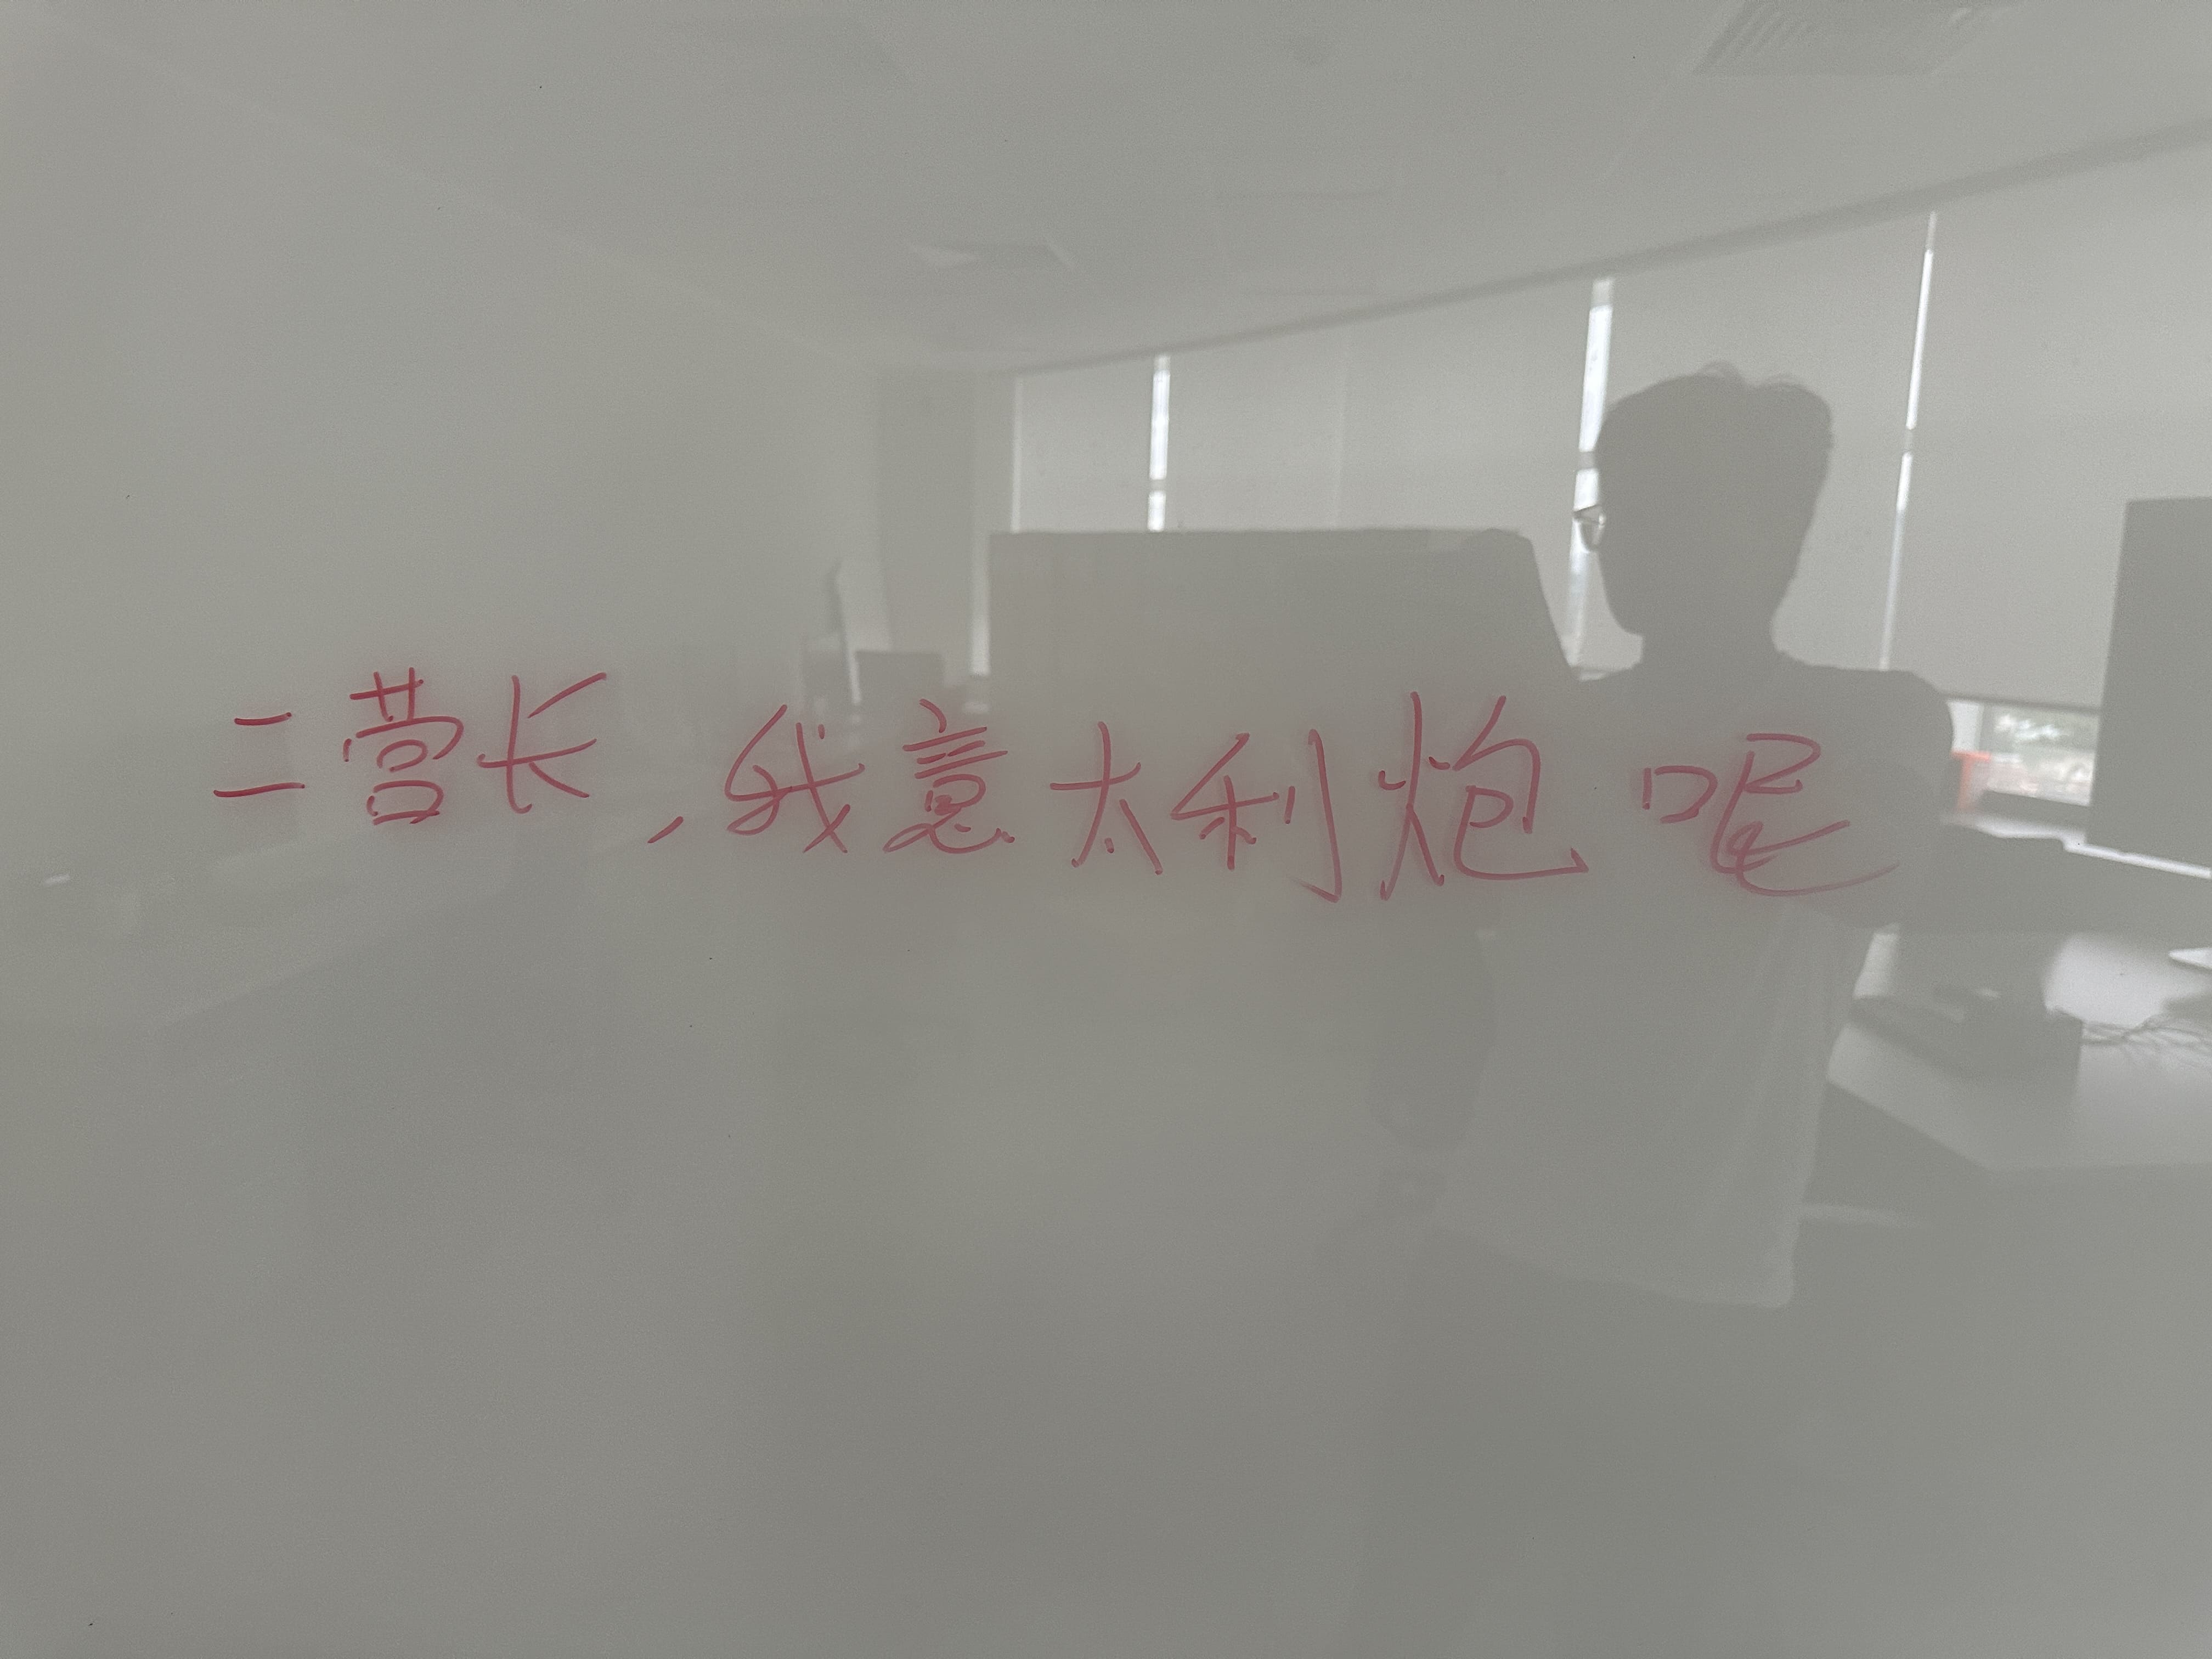 二营长,我意太利炮呢